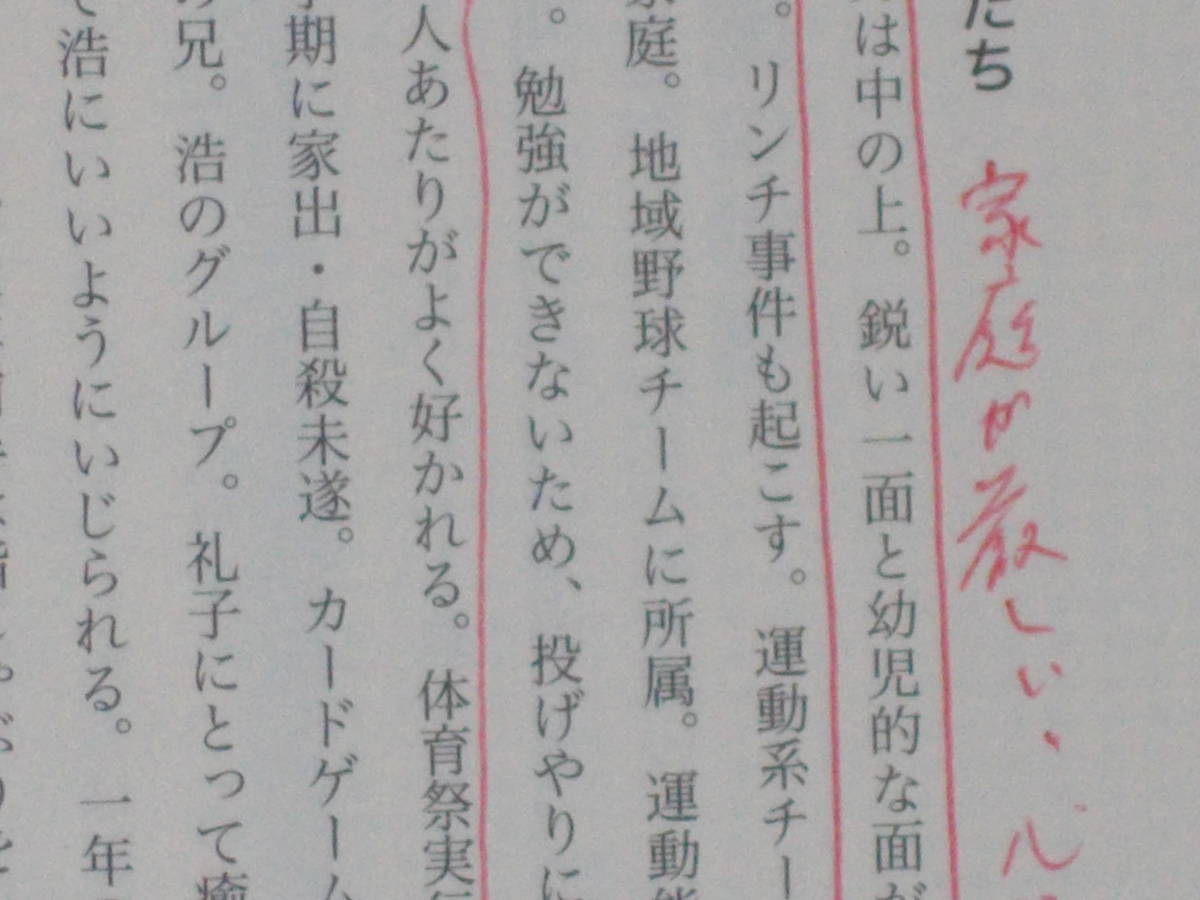 たち 家庭が厳しい、
は中の上。鋭い一面と幼児的な面が
。リンチ事件も起こす。運動系チー
家庭。地域野球チームに所属。運動能
。勉強ができないため、投げやりに
人あたりがよく好かれる。体育祭実行
期に家出・自殺未遂。カードゲーム
兄。浩のグループ。礼子にとって癒
て浩にいいようにいじられる。一年